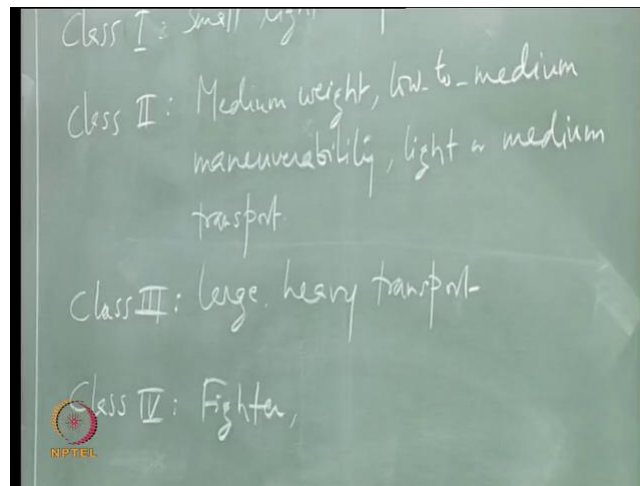 Class I: Small light
Class II: Medium weight, low-to-medium
maneuverability, light or medium
transport.
Class III: large. heavy transport-
Class IV: Fighter,
NPTEL